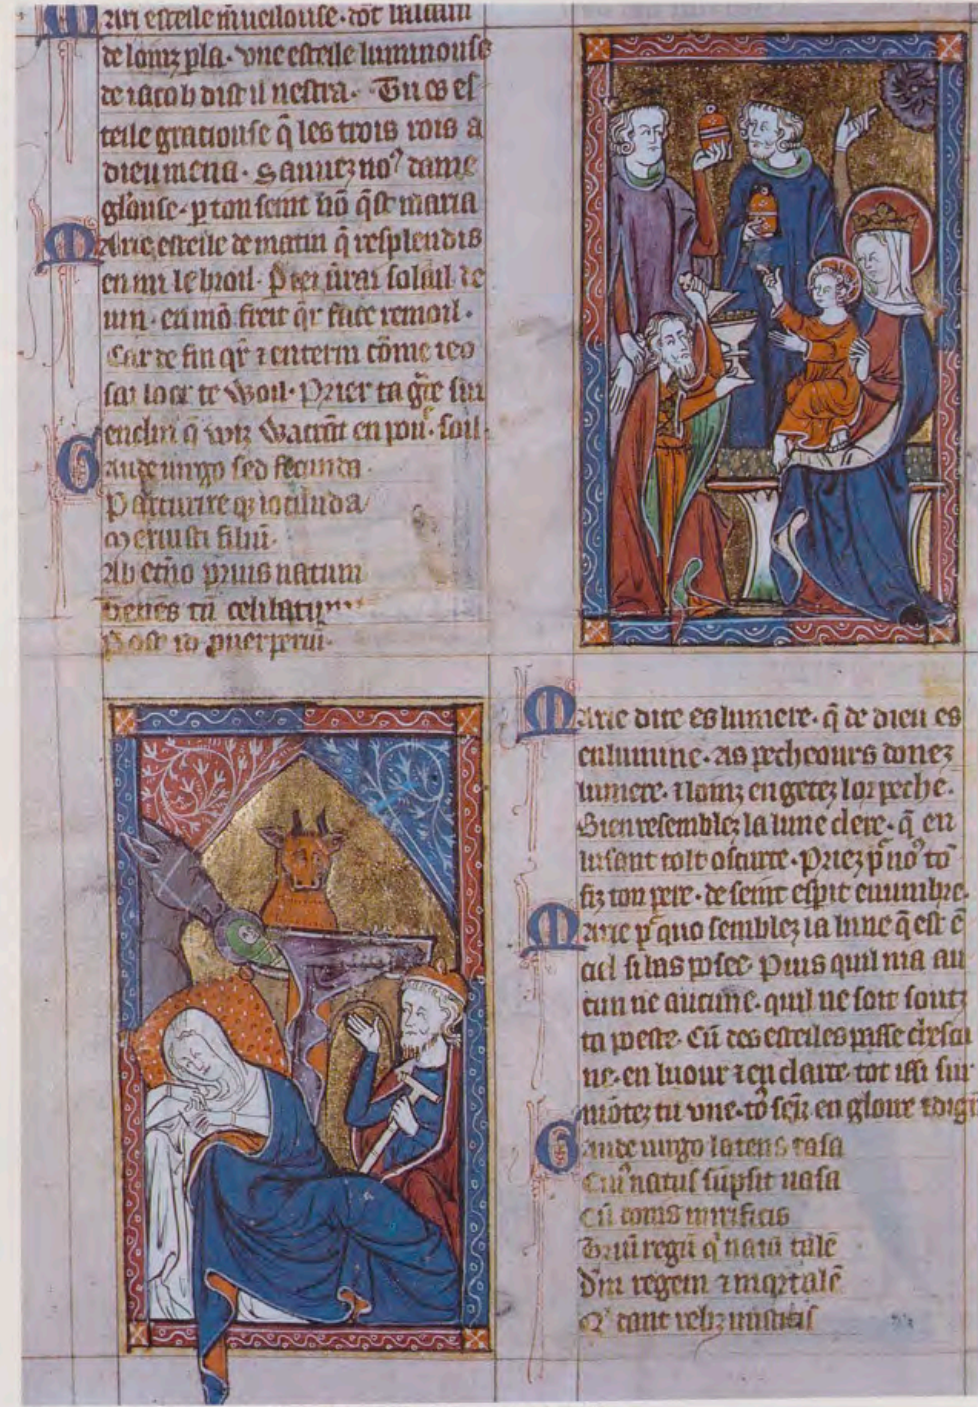 Mari esteile mueilouse. dōt balaam
de loinz pla. vne esteile luminouse
de iacob dist il nestra. Tu es es
teile graciouse q̄ les trois rois a
dieu mena. Sauuez noꝰ dame
gl'ouse. p ton seint nō q̄st maria
Marie, esteile de matin q̄ resplendis
en mi le broil. Preez
um. en mō freit q̄r face remoil.
Car de fin q̄r ⁊ enterin cōme ieo
sai loer te Woil. Prier ta gͣce sui
enclin q̄ en poi. soil
Gaude uirgo sed fecunda
Parturire q̄ iocunda
Meruisti filiū.
Ab et'no prius natum
Uenēs tū celibatum
Post io puerperiū.
Marie dite es lumiere. q̄ de dieu es
enlumine. as pecheours donez
lumere. ⁊ loinz en getez lor peche.
Bien resemblez la lune clere. q̄ en
lusant tolt oscurte. Priez pͬ noꝰ tō
fiz ton pere. de seint esp̄it enumbre.
Marie pͬ quo semblez la lune q̄ est ē
ciel si has posee. Puis quil nia au
cun ne aucune. quil ne soit soutz
ta poeste. Cū des esteiles passe
ne. en luour ⁊ en clarte. tot issi sur
mōtez tu vne. tō en gloire ⁊ dig
Gaude uirgo latens casa
Cui' natus sūpsit uasa
Cū donis mirificis
Triū regū q' natū talē
Dn̄i regem ⁊ mortalē
dant rebȝ misticis